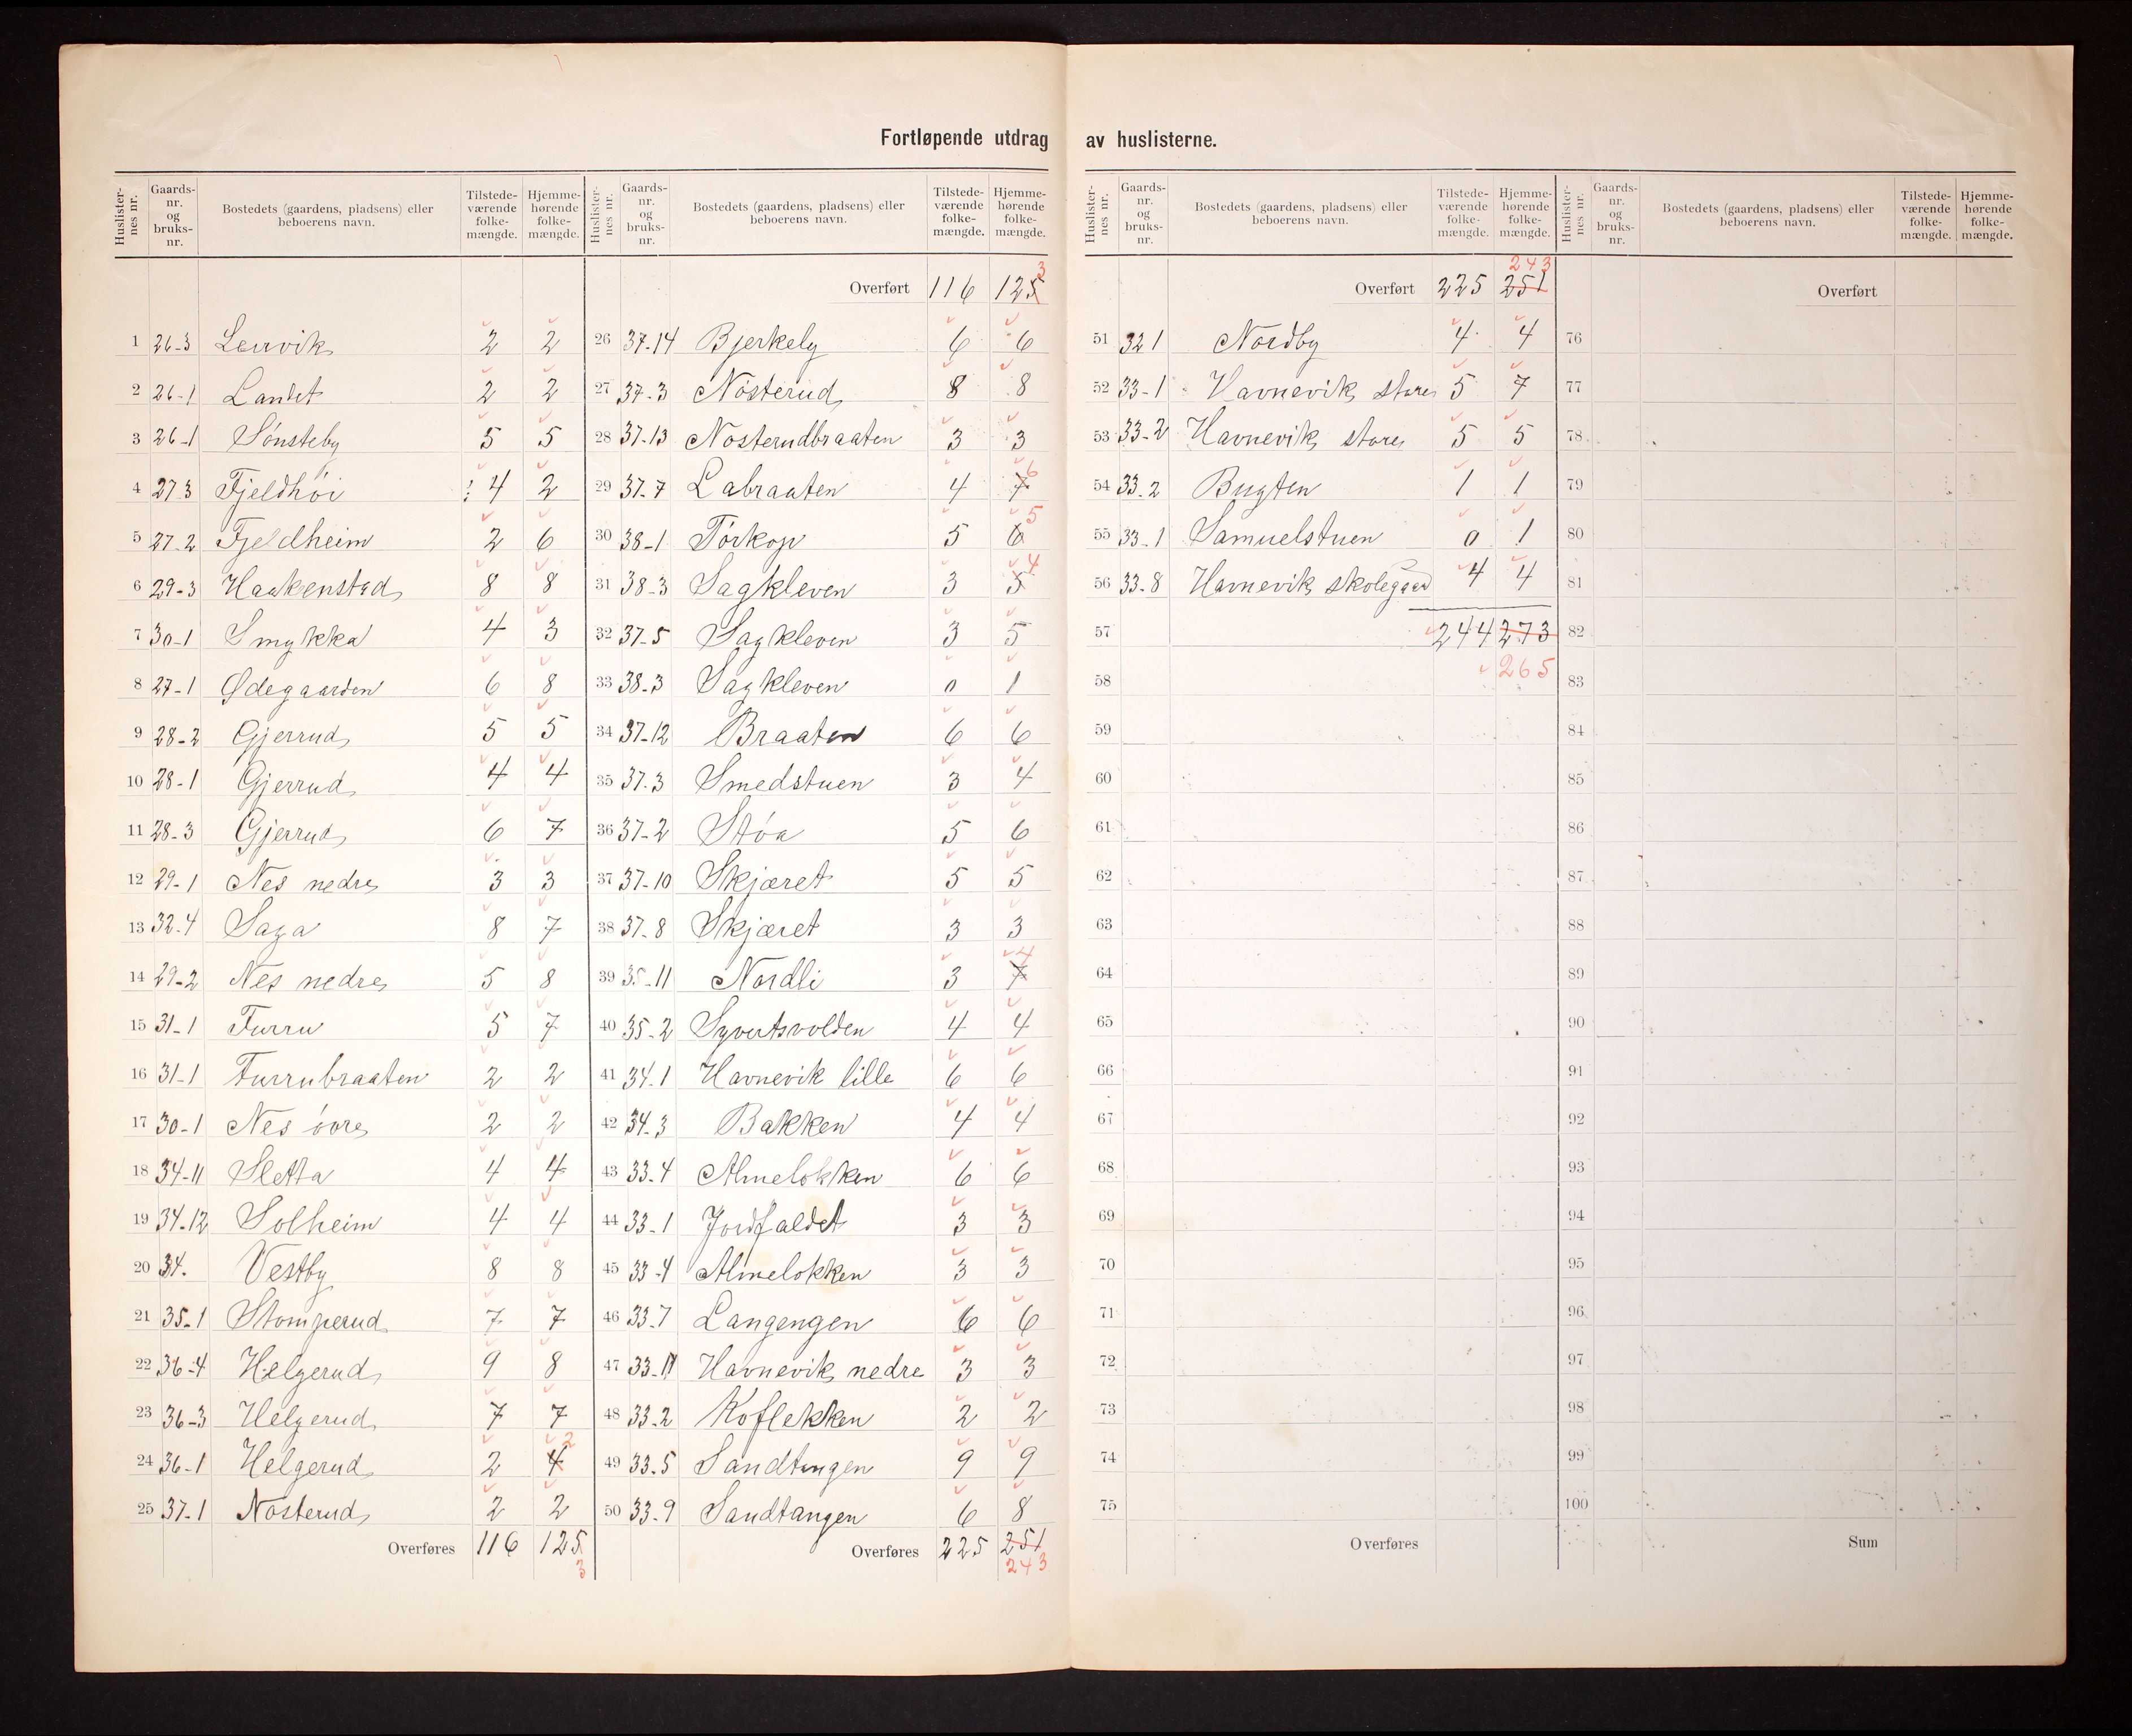 Fortløpende utdrag av huslisterne.
Huslisternes nr. | Gaards-nr. og bruks-nr. | Bostedets (gaardens, pladsens) eller beboerens navn. | Tilstede-værende folke-mængde. | Hjemme-hørende folke-mængde.
1 26-3 Lerrvik 2 2
2 26-1 Landet 2 2
3 26-1 Sønsteby 5 5
4 27 3 Fjeldhøi 4 2
5 27-2 Fjeldheim 2 6
6 29-3 Haakenstad 8 8
7 30-1 Smykka 4 3
8 27-1 Ødegaarden 6 8
9 28-2 Gjerrud 5 5
10 28-1 Gjerrud 4 4
11 28-3 Gjerrud 6 7
12 29-1 Nes nedre 3 3
13 32-4 Saga 8 7
14 29-2 Nes nedre 5 8
15 31-1 Furru 5 7
16 31-1 Furrubraaten 2 2
17 30-1 Nes øvre 2 2
18 34-11 Sletta 4 4
19 34-12 Solheim 4 4
20 34. Vestby 8 8
21 35-1 Stomperud 7 7
22 36-4 Helgerud 9 8
23 36-3 Helgerud 7 7
24 36-1 Helgerud 2 4 2
25 37-1 Nøsterud 2 2
Overføres 116 125 3
Huslisternes nr. | Gaards-nr. og bruks-nr. | Bostedets (gaardens, pladsens) eller beboerens navn. | Tilstede-værende folke-mængde. | Hjemme-hørende folke-mængde.
Overført 116 125 3
26 37-14 Bjerkely 6 6
27 37-3 Nøsterud 8 8
28 37-13 Nosterudbraaten 3 3
29 37-7 Labraaten 4 7 6
30 38-1 Tørkop 5 6 5
31 38-3 Sagkleven 3 5 4
32 37-5 Sagkleven 3 5
33 38-3 Sagkleven 0 1
34 37-12 Braaten 6 6
35 37-3 Smedstuen 3 4
36 37-2 Støa 5 6
37 37-10 Skjæret 5 5
38 37-8 Skjæret 3 3
39 35-11 Nordli 3 7 4
40 35-2 Syvertsvolden 4 4
41 34-1 Havnevik lille 6 6
42 34-3 Bakken 4 4
43 33-4 Almelokken 6 6
44 33-1 Jordfaldet 3 3
45 33-4 Almelokken 3 3
46 33-7 Langengen 6 6
47 33-11 Havnevik nedre 3 3
48 33-2 Koflekken 2 2
49 33-5 Sandtangen 9 9
50 33-9 Sandtangen 6 8
Overføres 225 251 243
Huslisternes nr. | Gaards-nr. og bruks-nr. | Bostedets (gaardens, pladsens) eller beboerens navn. | Tilstede-værende folke-mængde. | Hjemme-hørende folke-mængde.
Overført 225 251 243
51 32 1 Nordby 4 4
52 33-1 Havnevik store 5 7
53 33-2 Havnevik store 5 5
54 33-2 Bugten 1 1
55 33-1 Samuelstuen 0 1
56 33-8 Havnevik skolegaard 4 4
57 244 273
58 265
59
60
61
62
63
64
65
66
67
68
69
70
71
72
73
74
75
Overføres
Huslisternes nr. | Gaards-nr. og bruks-nr. | Bostedets (gaardens, pladsens) eller beboerens navn. | Tilstede-værende folke-mængde. | Hjemme-hørende folke-mængde.
Overført
76
77
78
79
80
81
82
83
84
85
86
87
88
89
90
91
92
93
94
95
96
97
98
99
100
Sum